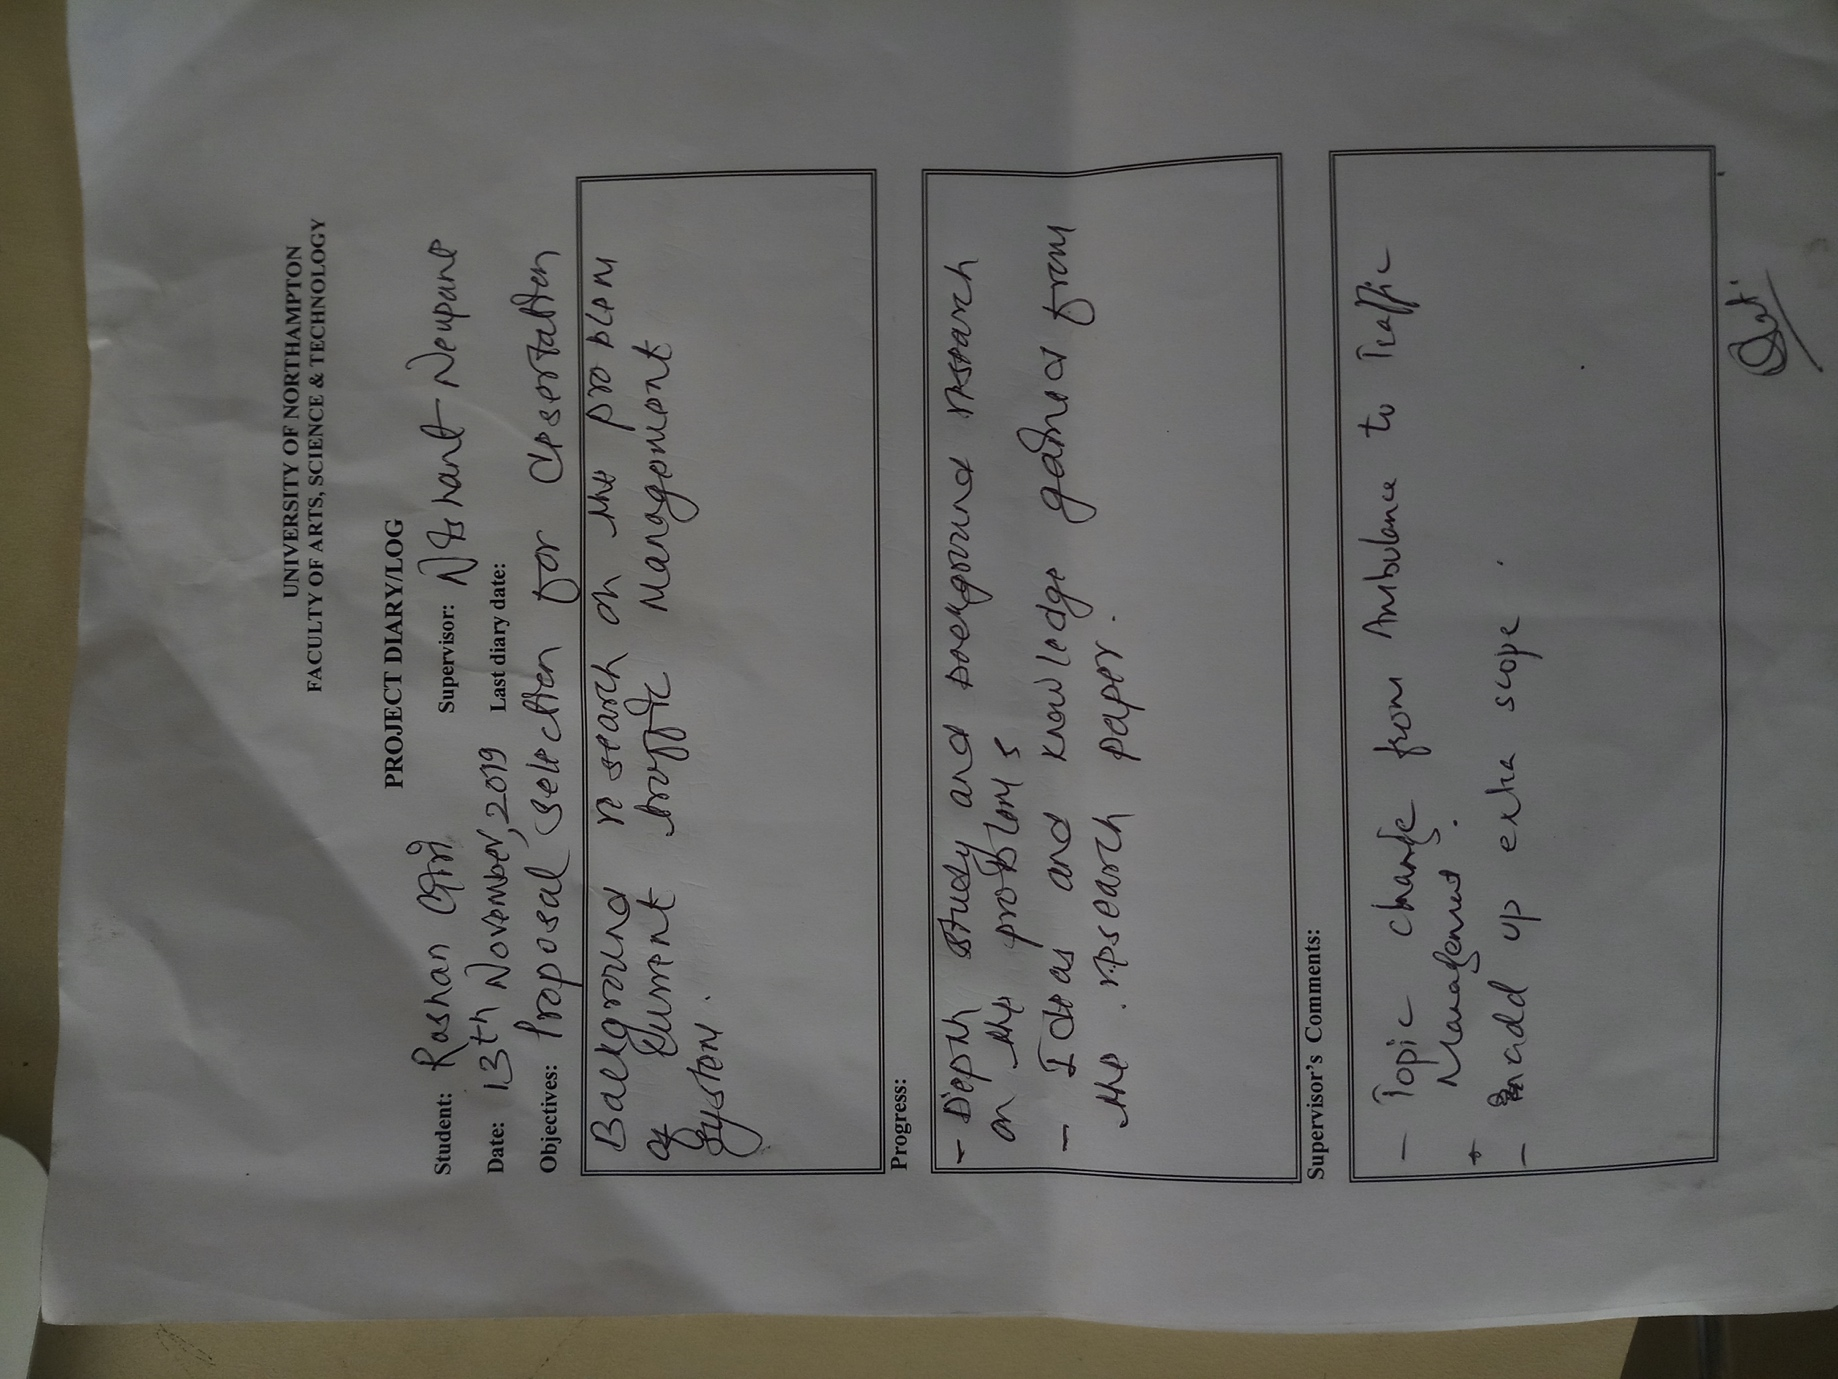 UNIVERSITY OF NORTHAMPTON
FACULTY OF ARTS, SCIENCE & TECHNOLOGY
PROJECT DIARY/LOG
Student: Roshan Supervisor: Nishant Neupane
Date: 13th November, 2019 Last diary date:
Objectives: Proposal selection for desertation
Background research on the problem
of current traffic Management
system.
Progress:
- Depth study and background research
on the problems
- Ideas and knowledge gained from
the research paper.
Supervisor's Comments:
- Topic change from Ambulance to Traffic
Management.
- add up extra scope.